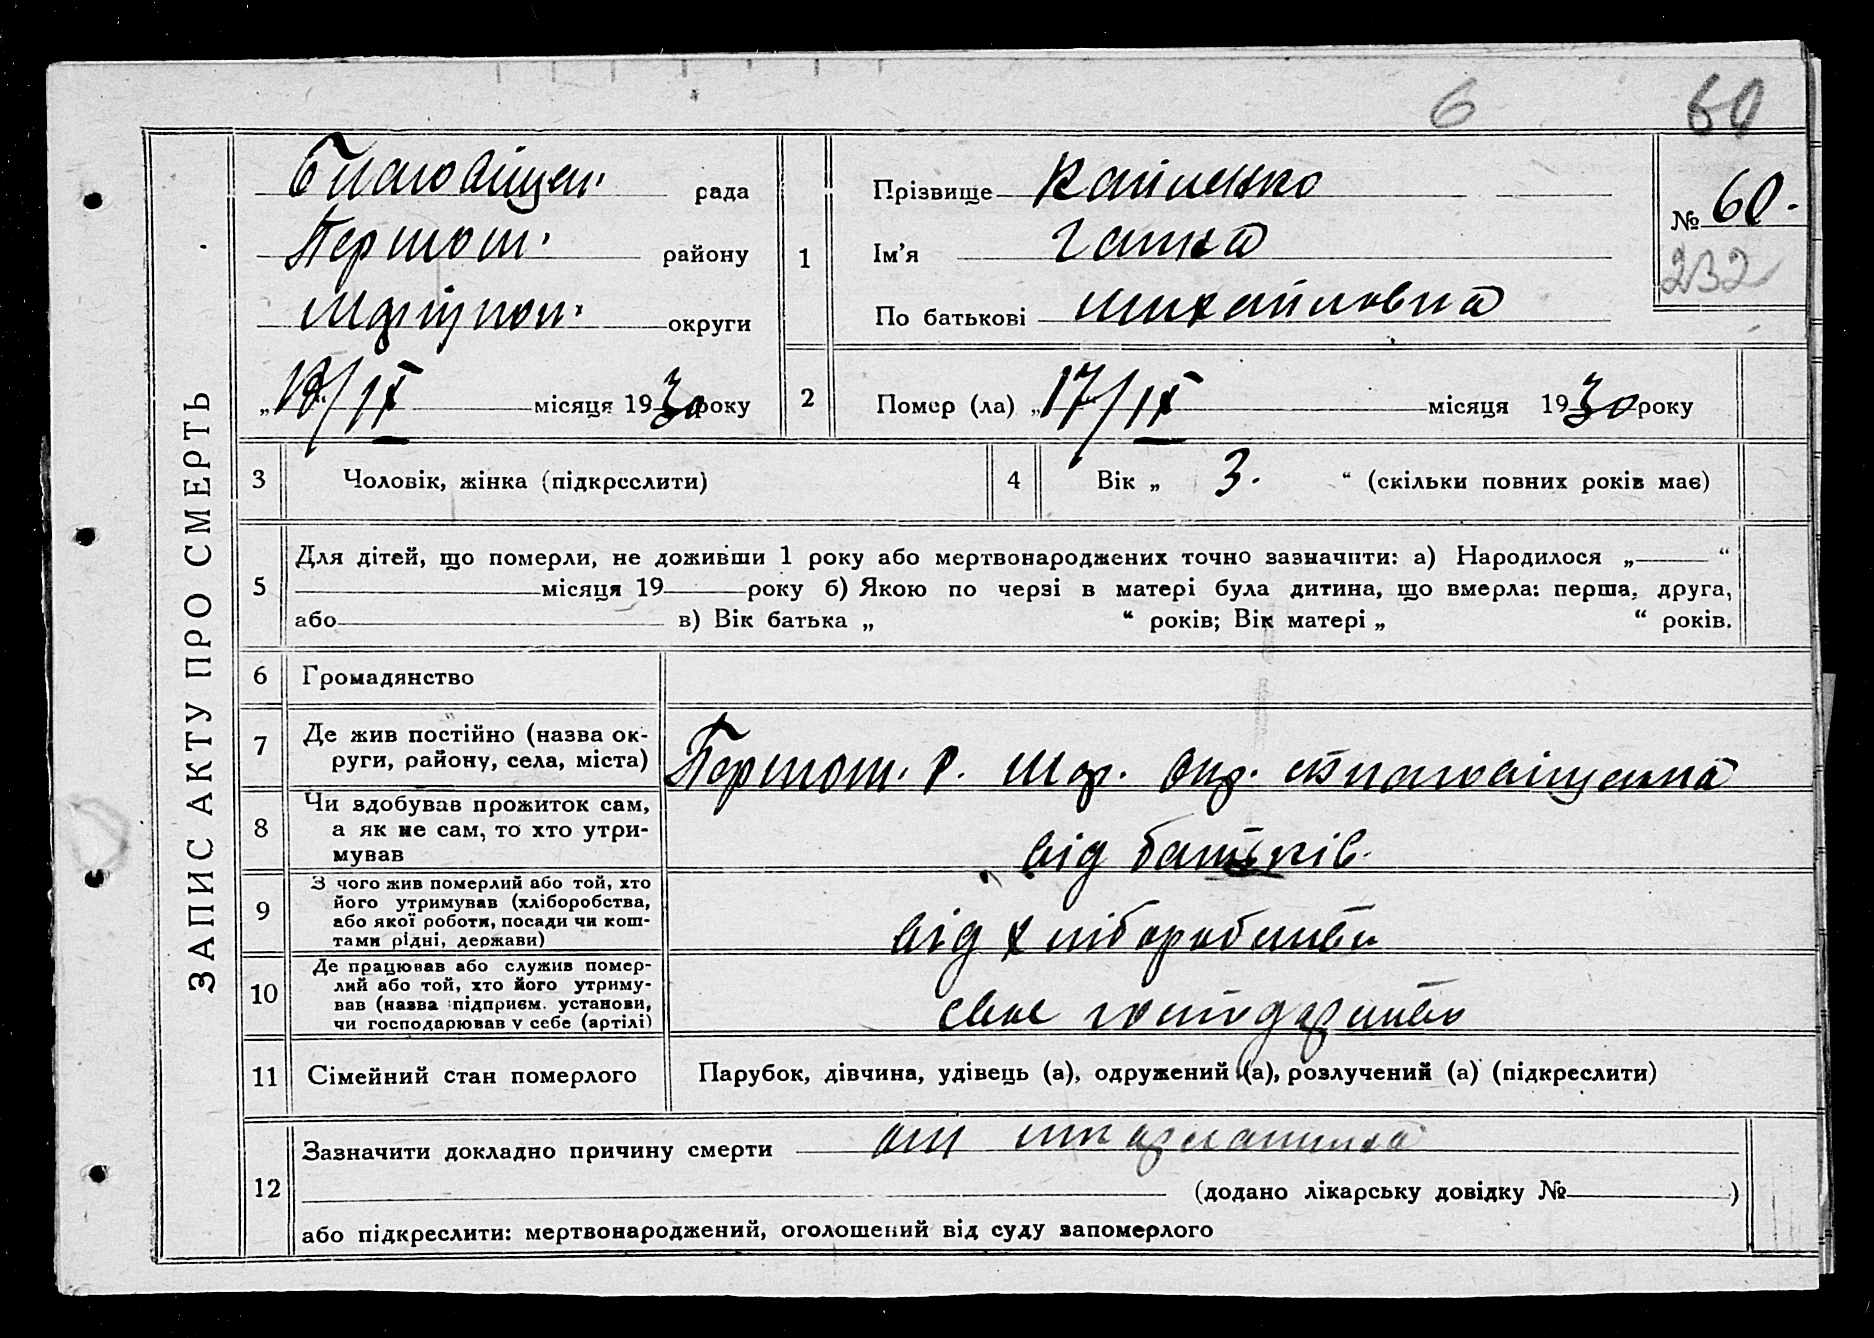 6 60
ЗАПИС АКТУ ПРО СМЕРТЬ
Благовіщен. рада
Першот. района
району
Маріупол. округи
„18/IX місяця 1930 року
1
Прізвище
Ім’я Ганна
По батькові Михайловна
№ 60.
232
2 Помер (ла) „17/IX місяця 1930 року
3 Чоловік, жінка (підкреслити)
4 Вік „ 3. “ (скільки повних років має)
5 Для дітей, що померли, не доживши 1 року або мертвонароджених точно зазначити: а) Народилося „ “
місяця 19 року б) Якою по черзі в матері була дитина, що вмерла: перша, друга,
або в) Вік батька „ “ років; Вік матері „ “ років.
6 Громадянство
7 Де жив постійно (назва ок-
руги, району, села, міста)
Першот. р. Мар. окр. Благовіщенка
8 Чи здобував прожиток сам,
а як не сам, то хто утри-
мував
від батьків
9 З чого жив померлий або той, хто
його утримував (хліборобства,
або якої роботи, посади чи кош-
тами рідні, держави)
від хліборобства
10 Де працював або служив помер-
лий або той, хто його утриму-
вав (назва підприєм. установи,
чи господарював у себе (артілі)
свое господарство
11 Сімейний стан померлого
Парубок, дівчина, удівець (а), одружений (а), розлучений (а) (підкреслити)
12 Зазначити докладно причину смерти от
(додано лікарську довідку № )
або підкреслити: мертвонароджений, оголошений від суду запомерлого